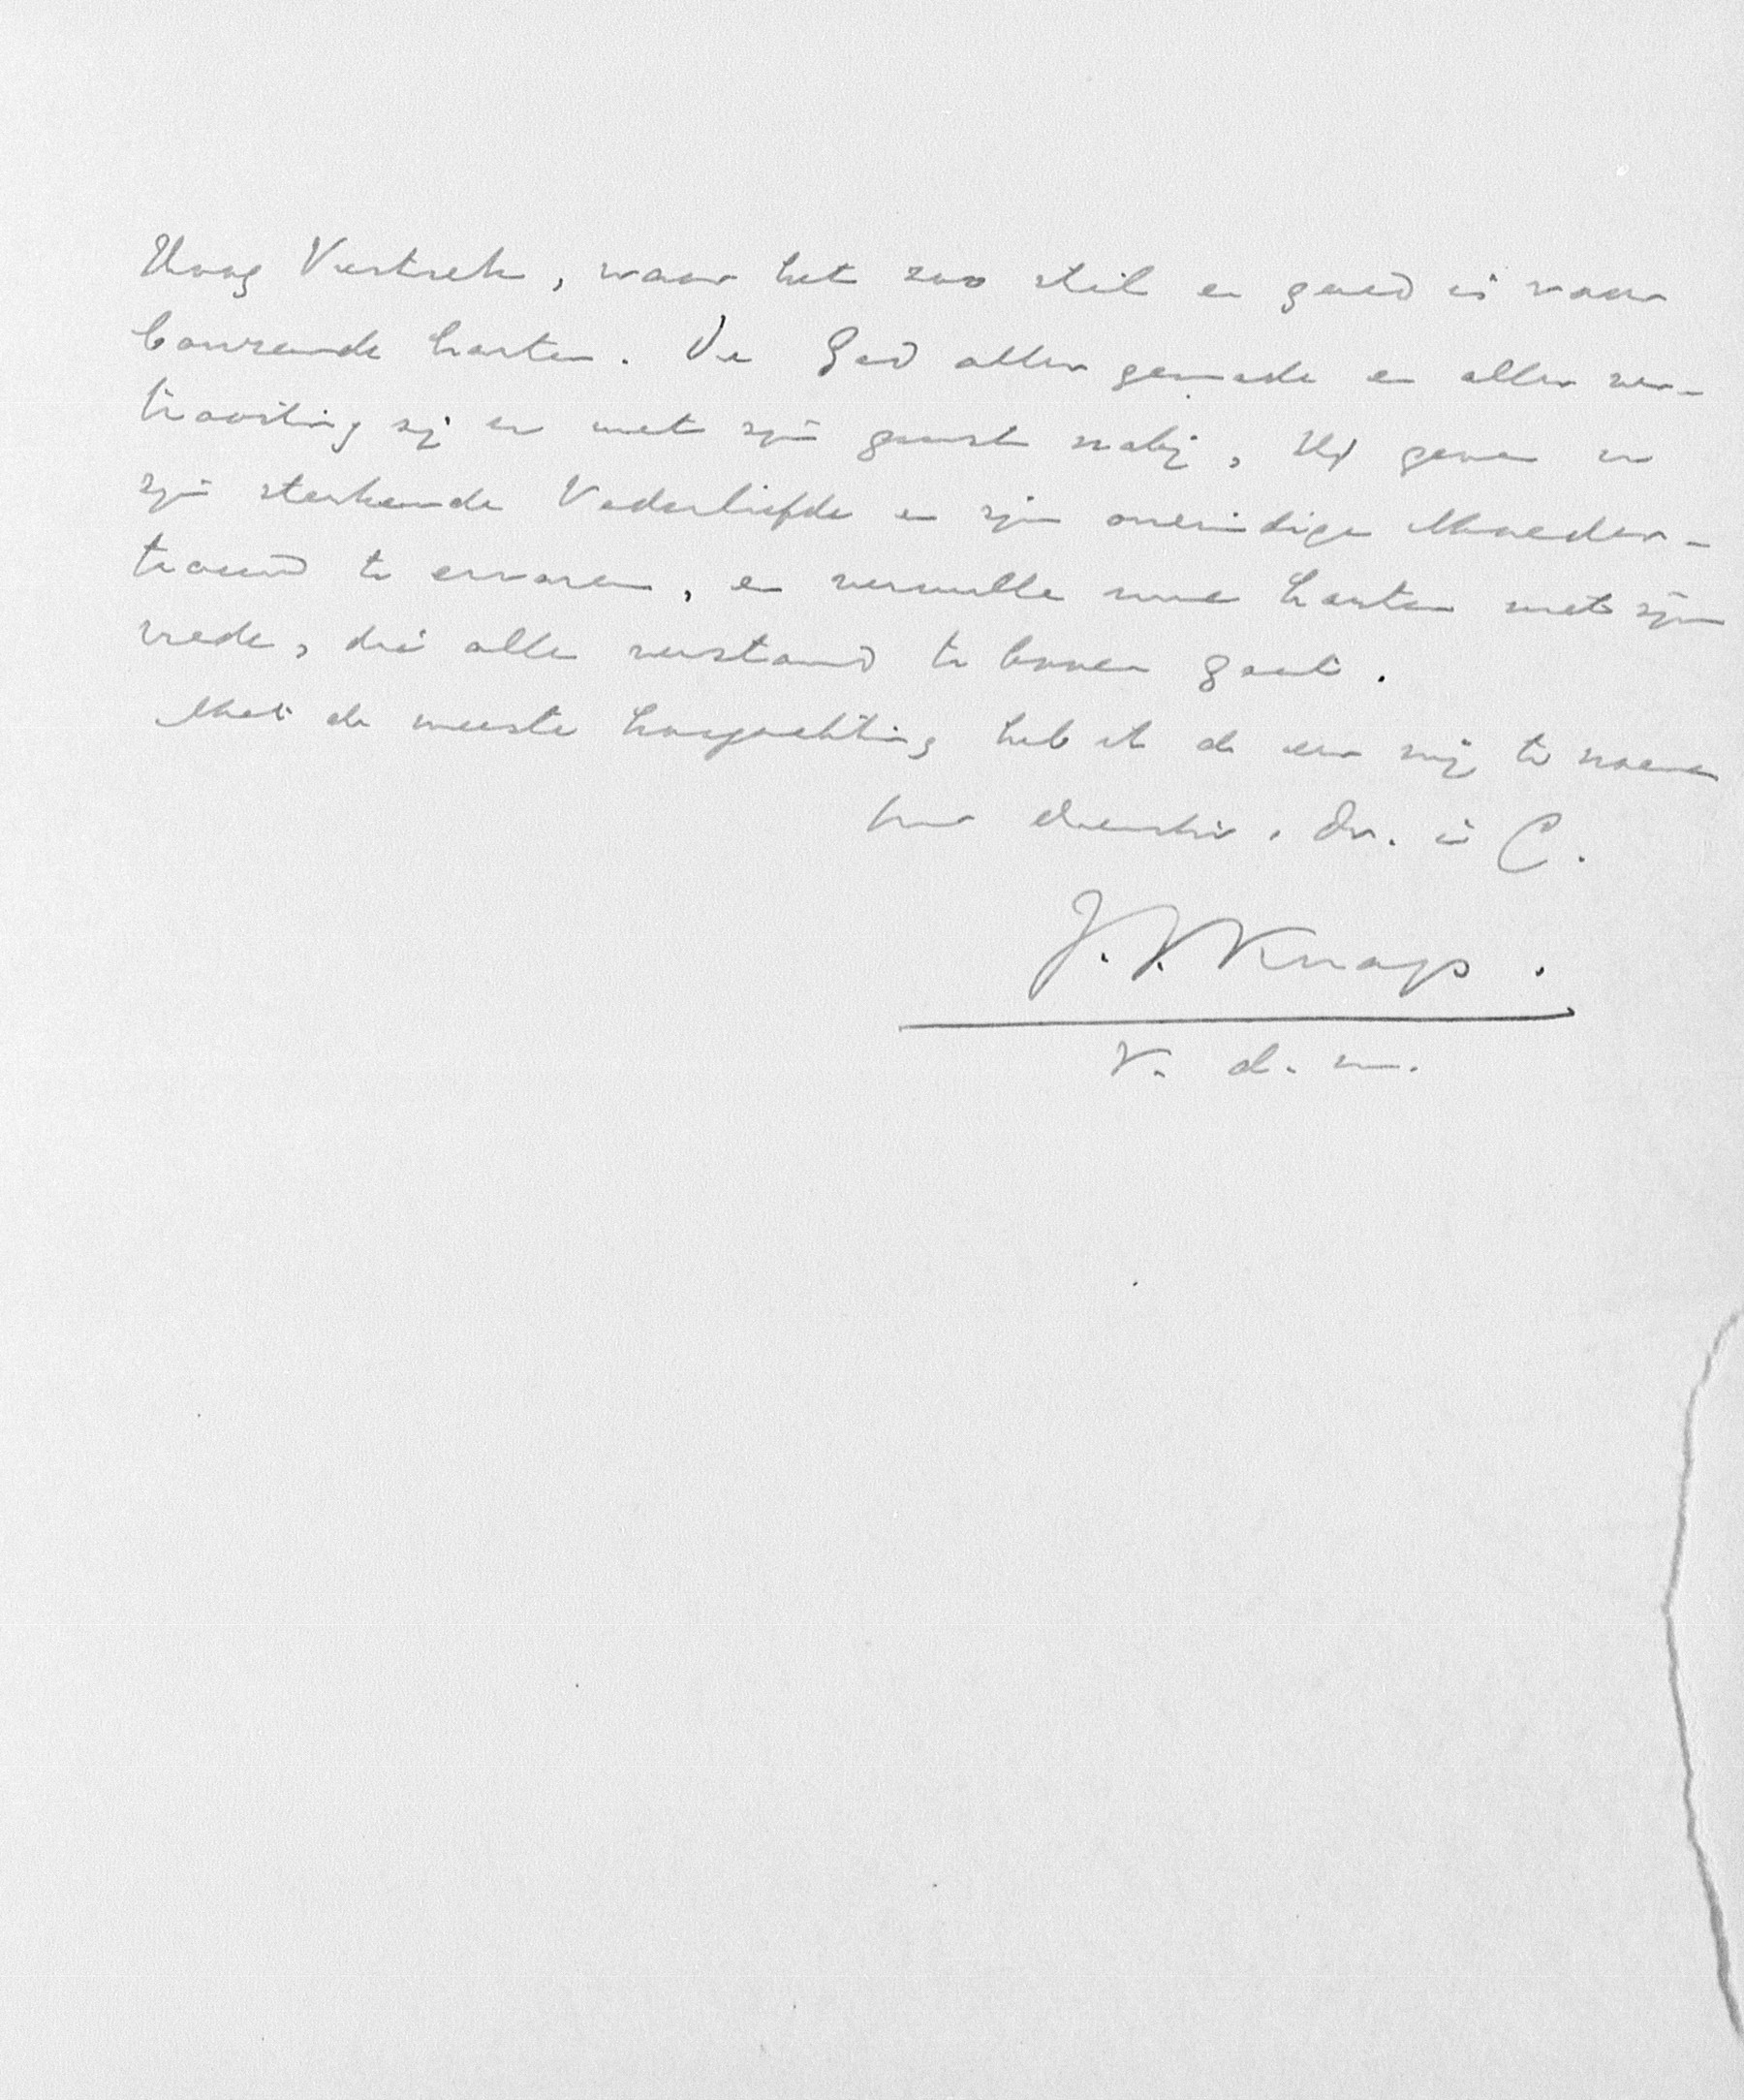 Hoog Vertrek, waar het zoo stil en goed is voor
bonzende harten. De God aller genade en aller ver-
troosting zij u met zijn gunst nabij, Hij geve u
zijn sterkende Vaderliefde en zijn oneindige Moeder-
troost te ervaren, en vervulle uwe harten met zijn
vrede, die alle verstand te boven gaat.
Met de meeste hoogachting heb ik de eer mij te noemen
uw dienstw. dr. in C.
J. J. Knap.
V. d. m.